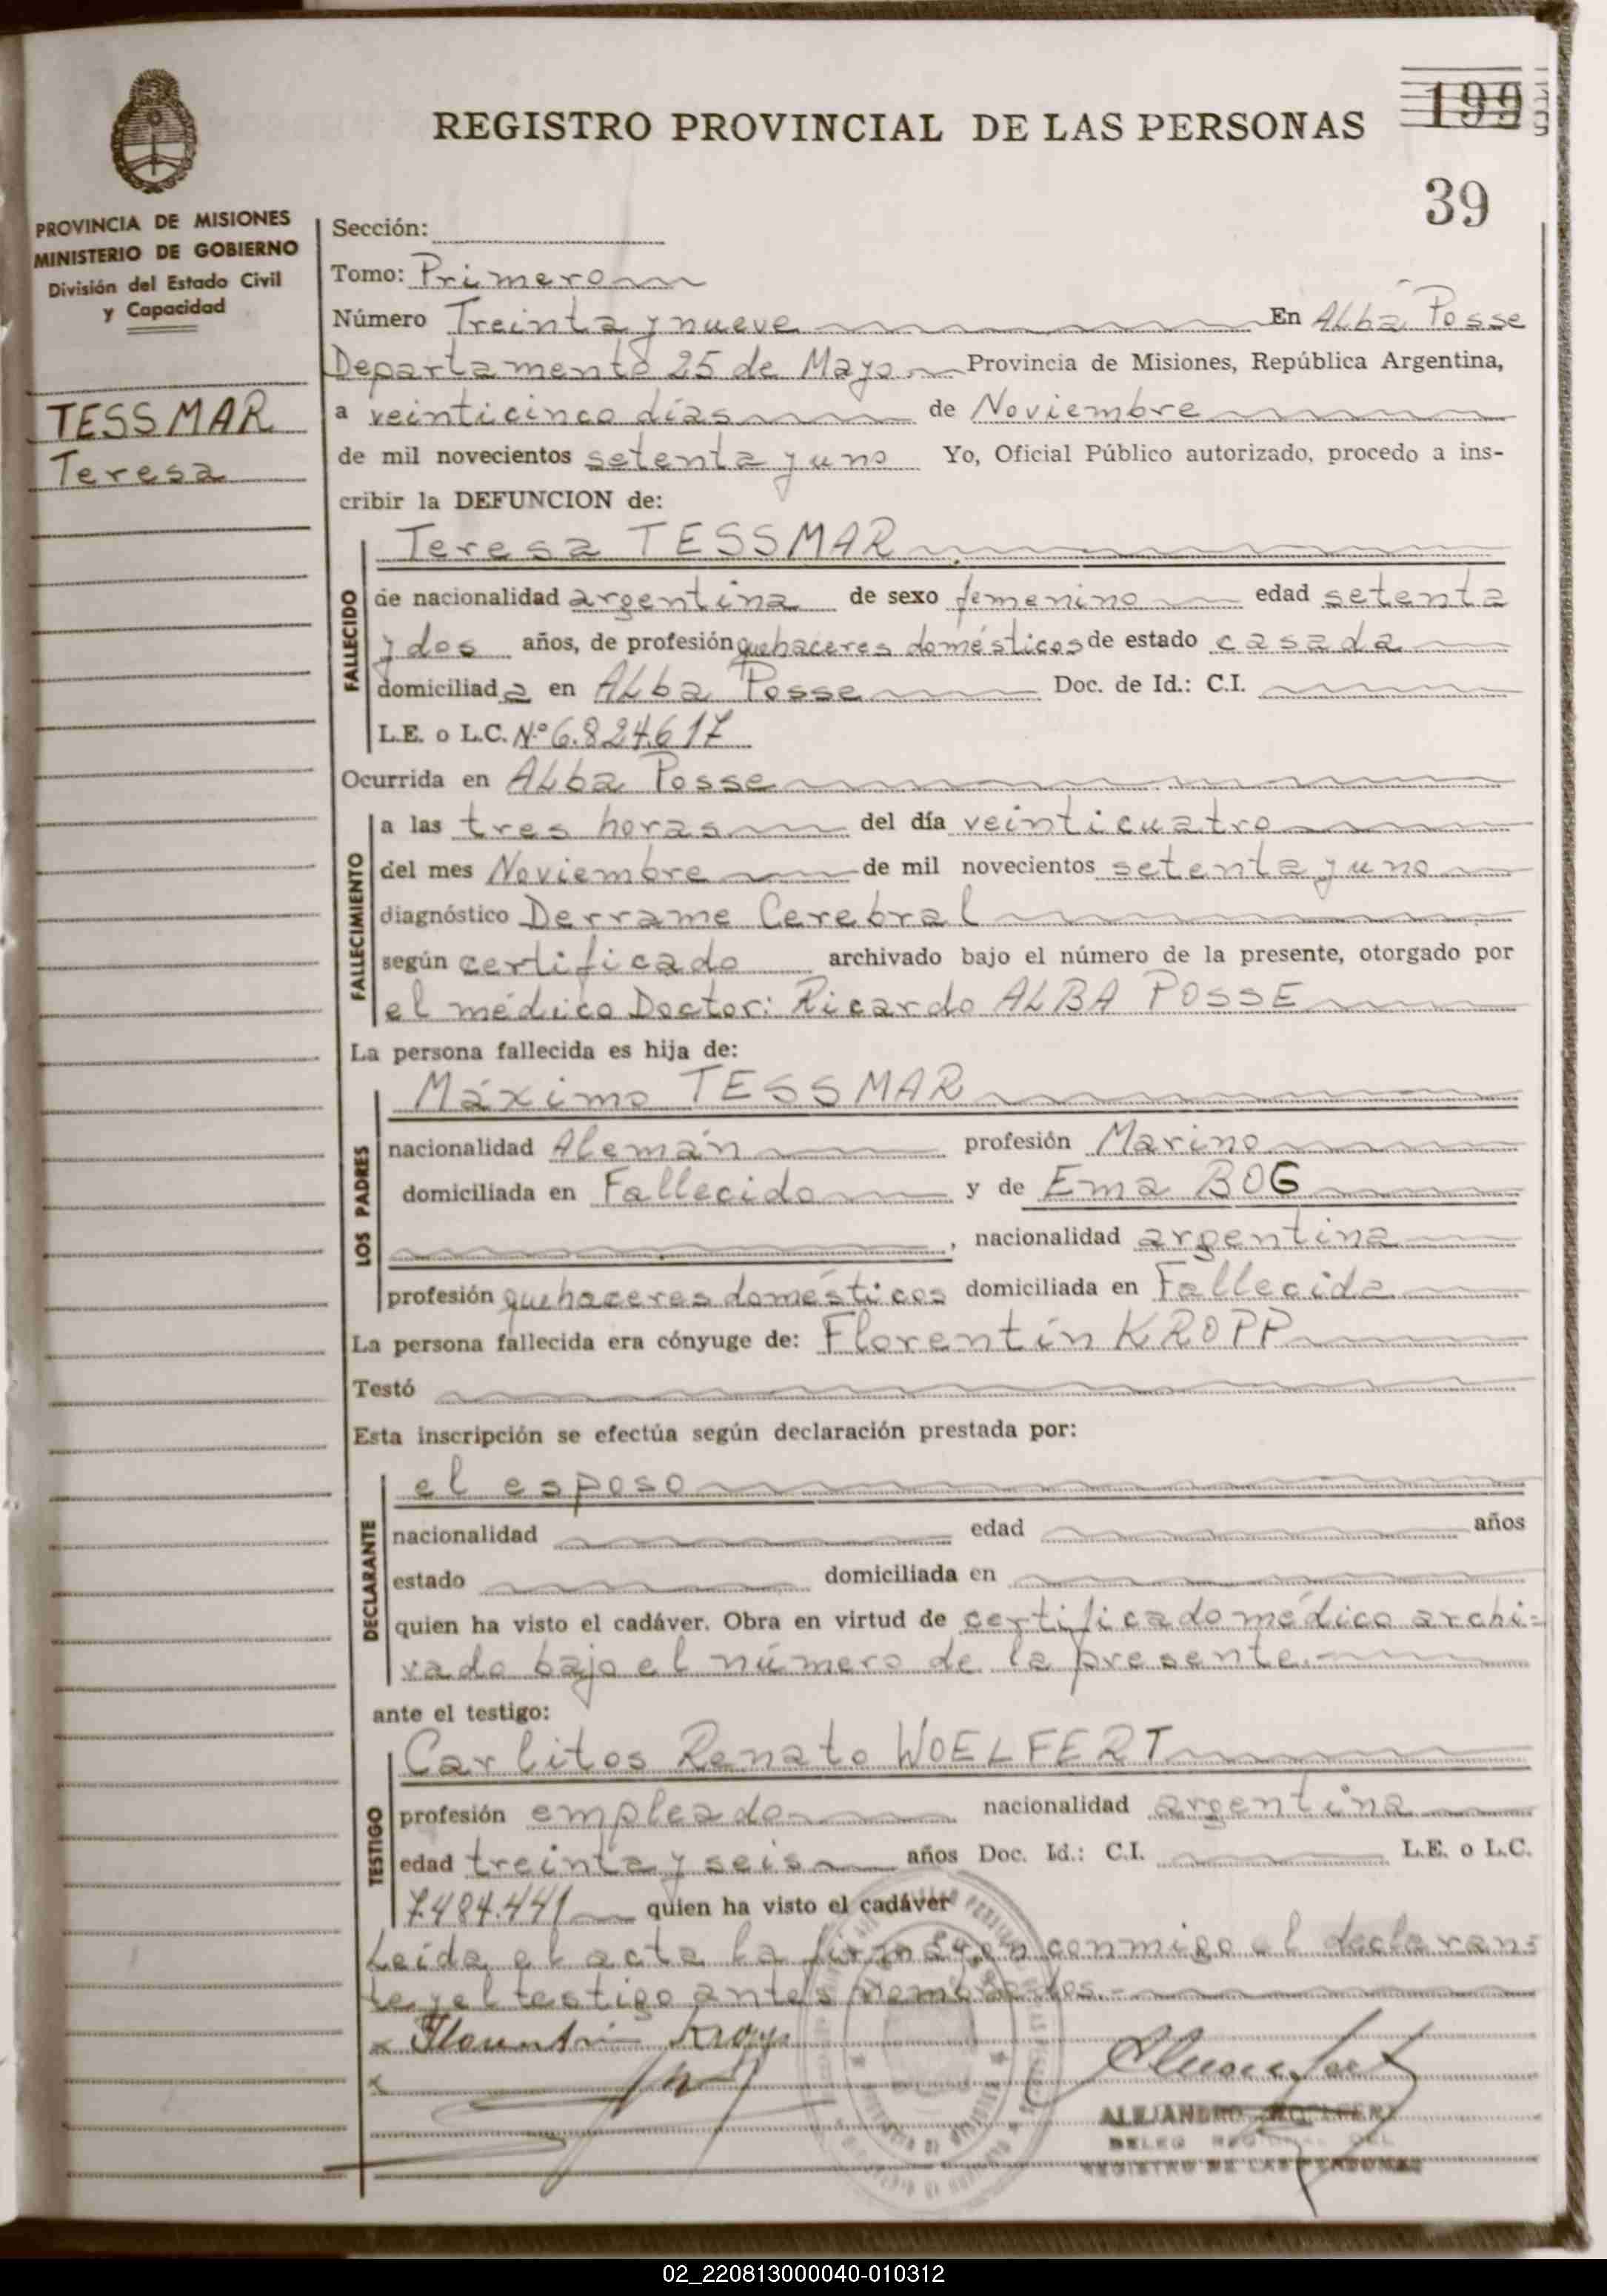 199
REGISTRO PROVINCIAL DE LAS PERSONAS
39
PROVINCIA DE MISIONES
MINISTERIO DE GOBIERNO
División del Estado Civil
y Capacidad
TESSMAR
Teresa
Sección:
Tomo: Primero
Número Treinta y nueve En Alba Posse
Departamento 25 de Mayo Provincia de Misiones, República Argentina,
a veinticinco días de Noviembre
de mil novecientos setenta y uno Yo, Oficial Público autorizado, procedo a ins-
cribir la DEFUNCION de:
Teresa TESSMAR
FALLECIDO
de nacionalidad argentina de sexo femenino edad setenta
y dos años, de profesión quehaceres domésticos de estado casada
domiciliada en Alba Posse Doc. de Id.: C.I.
L.E. o L.C. Nº 6.824.617
Ocurrida en Alba Posse
FALLECIMIENTO
a las tres horas del día veinticuatro
del mes Noviembre de mil novecientos setenta y uno
diagnóstico Derrame Cerebral
según certificado archivado bajo el número de la presente, otorgado por
el médico Doctor: Ricardo ALBA POSSE
La persona fallecida es hija de:
LOS PADRES
Máximo TESSMAR
nacionalidad Alemán profesión Marino
domiciliada en Fallecido y de Ema BOG
, nacionalidad argentina
profesión quehaceres domésticos domiciliada en Fallecida
La persona fallecida era cónyuge de: Florentín KROPP
Testó
Esta inscripción se efectúa según declaración prestada por:
DECLARANTE
el esposo
nacionalidad edad años
estado domiciliada en
quien ha visto el cadáver. Obra en virtud de certificado médico archi=
vado bajo el número de la presente.-
ante el testigo:
TESTIGO
Carlitos Renato WOELFERT
profesión empleado nacionalidad argentina
edad treinta y seis años Doc. Id.: C.I. L.E. o L.C.
7.484.441 quien ha visto el cadáver
Leída el acta la firman con conmigo el declaran=
te y el testigo antes
x
x
ALEJANDRO
REGISTRO DE LAS PERSONAS
02_220813000040-010312